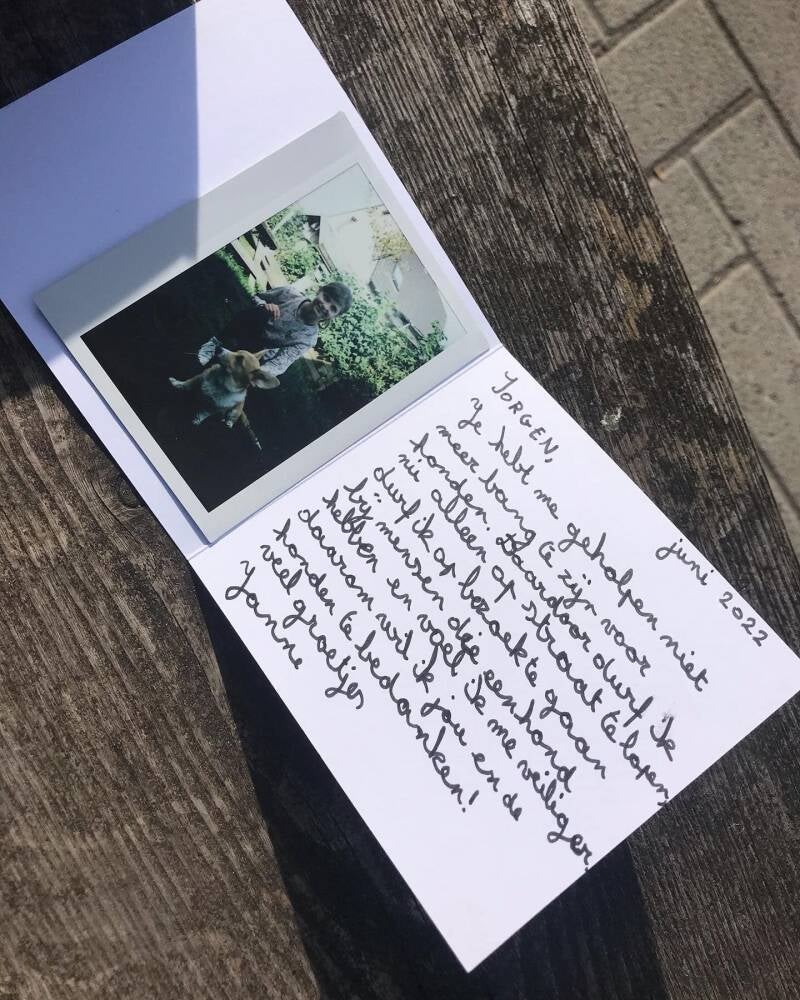 juni 2022
JORGEN,
Je hebt me geholpen niet
meer bang te zijn voor
honden. Daardoor durf ik
nu alleen op straat te lopen,
durf ik op bezoek te gaan
bij mensen die een hond
hebben en voel ik me veiliger,
daarom wil ik jou en de
honden te bedanken!
veel groetjes
Janne